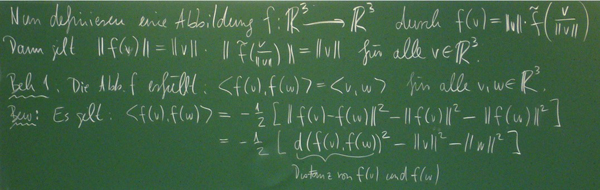 Nun definieren eine Abbildung f: ℝ³ → ℝ³ durch f(v) = ‖v‖ · f̃(v/‖v‖)
Dann gilt ‖f(v)‖ = ‖v‖ · ‖f̃(v/‖v‖)‖ = ‖v‖ für alle v ∈ ℝ³.
Beh 1. Die Abb. f erfüllt: <f(v), f(w)> = <v, w> für alle v, w ∈ ℝ³.
Bew: Es gilt: <f(v), f(w)> = -1/2 [ ‖f(v)-f(w)‖² - ‖f(v)‖² - ‖f(w)‖² ]
= -1/2 [ d(f(v), f(w))² - ‖v‖² - ‖w‖² ]
Distanz von f(v) und f(w)